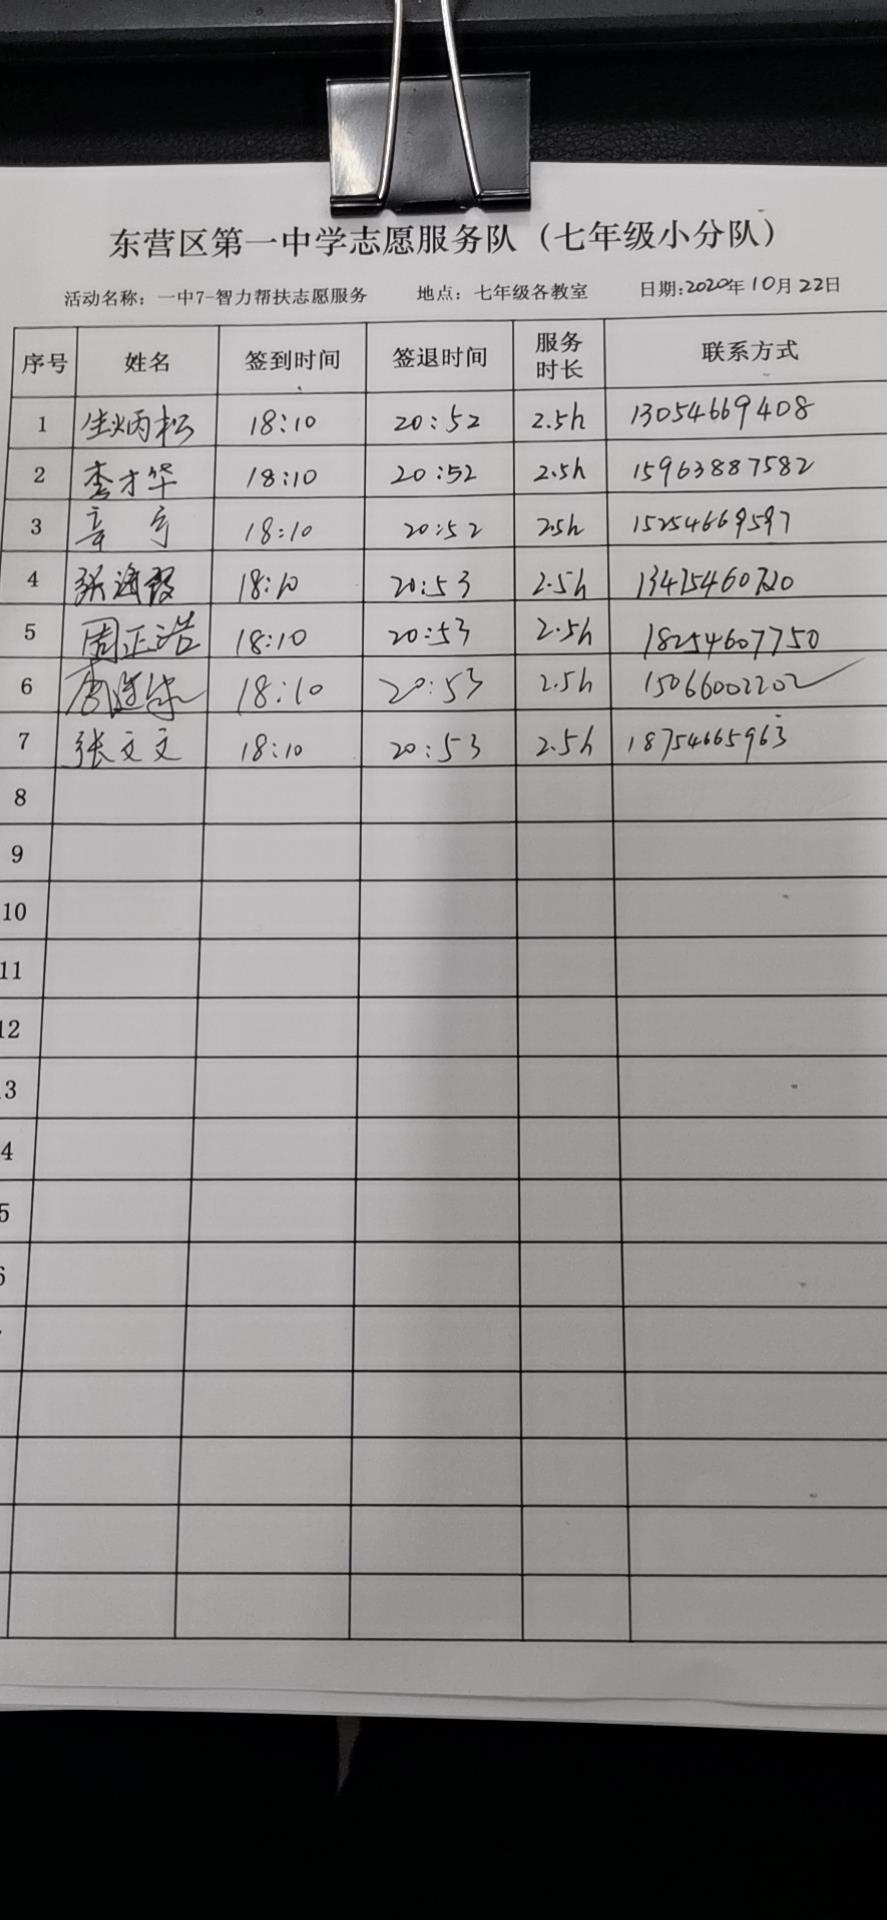 东营区第一中学志愿服务队（七年级小分队）
活动名称：一中7-智力帮扶志愿服务 地点：七年级各教室 日期:2020年10月22日
序号 姓名 签到时间 签退时间 服务时长 联系方式
1 生炳松 18:10 20:52 2.5h 13054669408
2 李才华 18:10 20:52 2.5h 15963887582
3 18:10 20:52 2.5h 15254669597
4 张海霞 18:10 20:53 2.5h 13475460720
5 周正浩 18:10 20:53 2.5h 18254607750
6 18:10 20:53 2.5h 15066002202
7 张文文 18:10 20:53 2.5h 18754665963
8
9
10
11
12
3
4
5
6